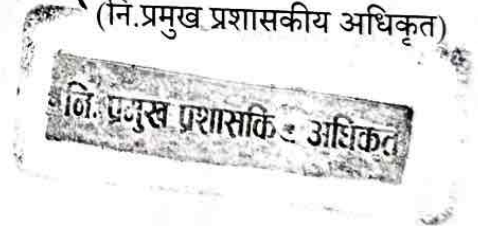 (नि.प्रमुख प्रशासकीय अधिकृत)
नि. प्रमुख प्रशासकि अधिकृत